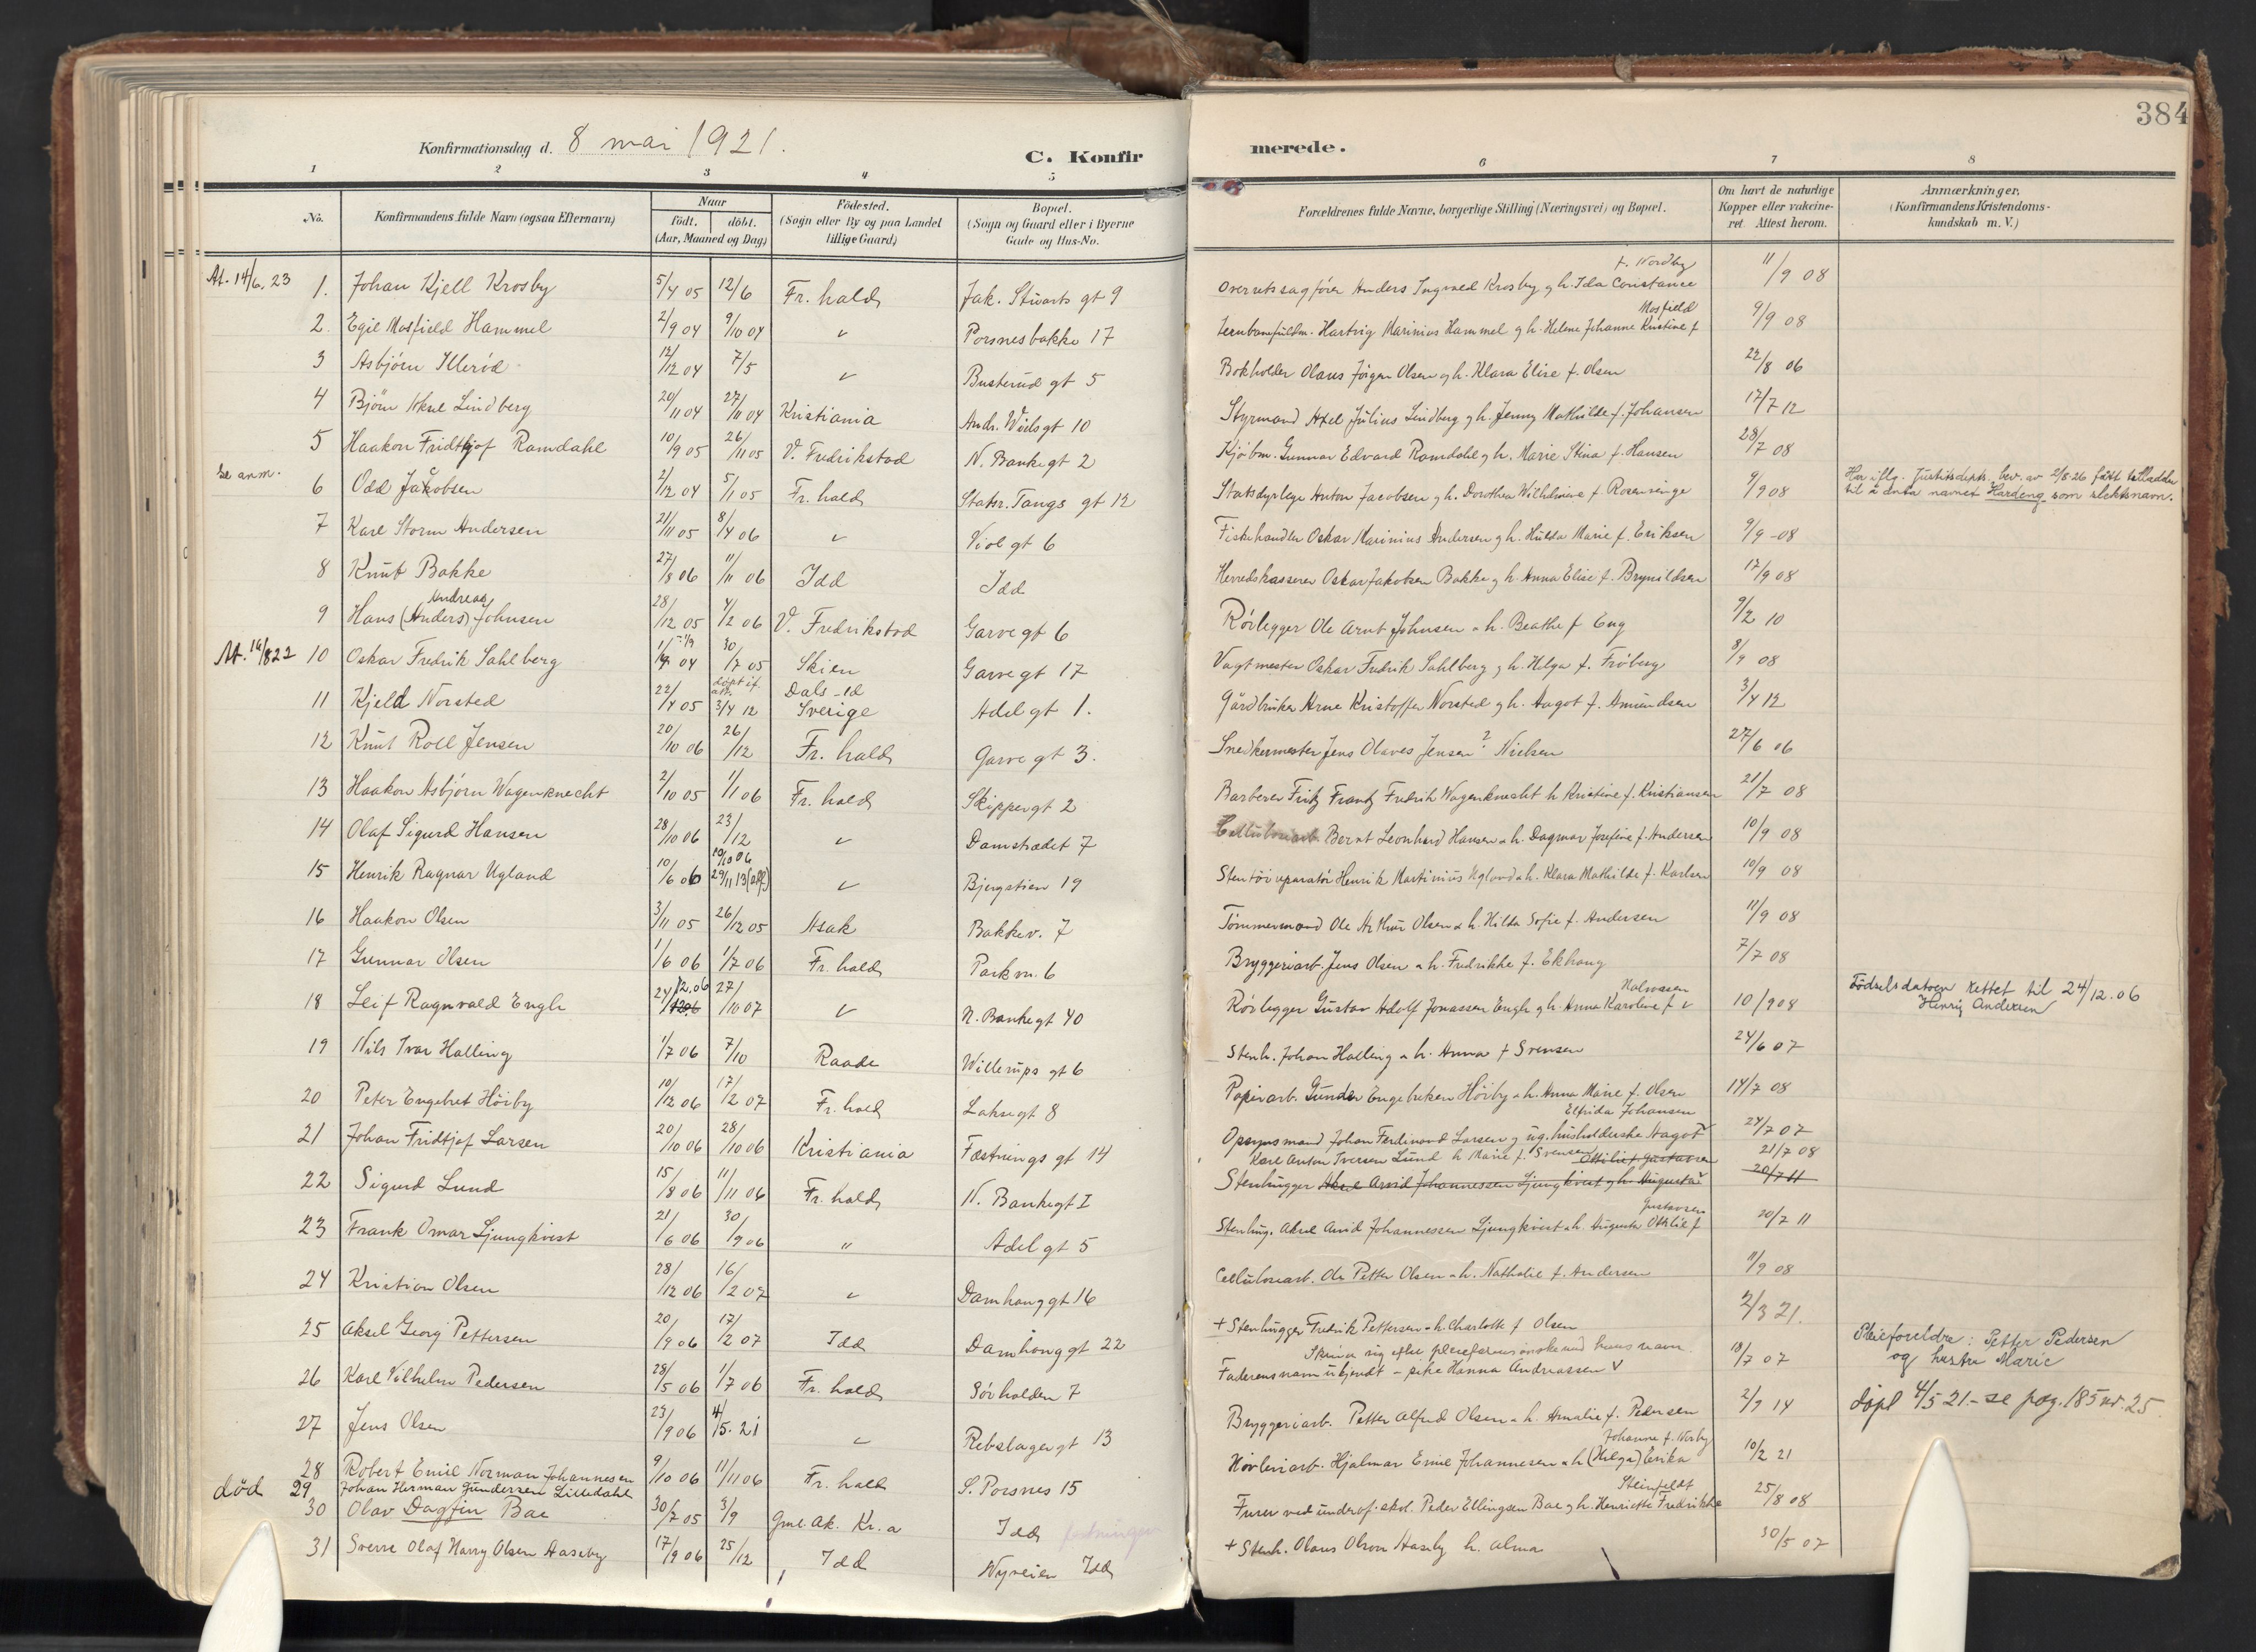 384
Konfirmationsdag d. 8 mai 1921.
C. Konfirmerede.
1 2 3 4 5 6 7 8
No.
Konfirmandens fulde Navn (ogsaa Efternavn)
Naar
født. døbt.
(Aar, Maaned og Dag)
Fødested.
(Sogn eller By og paa Landet
tillige Gaard)
Bopæl.
(Sogn og Gaard eller i Byerne
Gade og Hus-No.
Forældrenes fulde Navne, borgerlige Stilling (Næringsvei) og Bopæl.
Om havt de naturlige
Kopper eller vakcine-
ret. Attest herom.
Anmærkninger.
(Konfirmandens Kristendoms-
kundskab m. V.)
At. 14/6. 23 1. Johan Kjell Krosby 5/4 05 12/6 Fr. hald Jak. Stuarts gt 9 Overretssagfører Anders Ingvald Krosby og h. Ida Constance f. Nordby 11/9 08
2. Egil Mosfield Hammel 2/9 04 9/10 04 " Porsnesbakke 17 Jernbanefuldm. Hartvig Marinius Hammel og h. Helene Johanne Kristine f Mosfield 9/9 08
3 Asbjörn Illeröd 12/12 04 7/5 " Busterud gt 5 Bokholder Olaus Jörgen Olsen og h. Klara Elise f. Olsen 22/8 06
4 Björn Aksel Lindberg 20/11 04 27/11 04 Kristiania Andr. Wiels gt 10 Styrmand Axel Julius Lindberg og h. Jenny Mathilde f. Johansen 17/7 12
5 Haakon Fridtjof Ramdahl 10/9 05 26/11 05 V. Fredrikstad N. Banke gt 2 Kjöbm. Gunnar Edvard Ramdahl og h. Marie Stina f. Hansen 28/7 08
Se anm. 6 Odd Jakobsen 2/12 04 5/1 05 Fr. hald Statsr. Tangs gt 12 Statsdyrlege Anton Jacobsen og h. Dorothea Wilhelmine f. Rosensinge 9/9 08 Har iflg. Justitsdepts. bev. av 2/8 26 fått tilladelse
til å anta navnet Hardeng som slektsnavn.
7 Karl Storm Andersen 21/11 05 8/4 06 " Viol gt 6 Fiskehandler Oskar Marinius Andersen og h. Hulda Marie f. Eriksen 9/9 -08
8 Knut Bakke 27/8 06 11/11 06 Idd Idd Herredskasserer Oskar Jakobsen Bakke og h. Anna Elise f. Brynildsen 17/9 08
9 Hans (Anders) Andreas Johnsen 28/12 05 4/2 06 V. Fredrikstad Garve gt 6 Rörlegger Ole Arnt Johnsen & h. Beathe f Eng 9/2 10
At. 16/8 22 10 Oskar Fredrik Sahlberg 04 30/7 05 Skien Garve gt 17 Vagtmester Oskar Fredrik Sahlberg og h. Helga f. Fröberg 8/9 08
11 Kjeld Norsted 22/4 05 döpt if. att. 3/4 12 Dals-Ed Sverige Adel gt 1. Gårdbruker Arne Kristoffer Norsted og h. Aagot f. Amundsen 3/4 12
12 Knut Roll Jensen 20/10 06 26/12 Fr. hald Garve gt 3. Snedkermester Jens Olaves Jensen ? Nielsen 27/6 06
13 Haakon Asbjörn Wagenknecht 2/10 05 1/1 06 Fr. hald Skipper gt 2 Barberer Fritz Frantz Fredrik Wagenknecht h Kristine f. Kristiansen 21/7 08
14 Olaf Sigurd Hansen 28/10 06 23/12 " Damstrædet 7 Cellulosearb. Bernt Leonhard Hansen & h. Dagmar Josefine f. Andersen 10/9 08
15 Henrik Ragnar Ugland 10/6 06 29/11 13 " Bjergstien 19 Stentöireparatör Henrik Martinius Ugland & h. Klara Mathilde f. Karlsen 10/9 08
16 Haakon Olsen 3/11 05 26/12 05 Asak Bakkev. 7 Tömmermand Ole Arthur Olsen & h. Hilda Sofie f. Andersen 11/9 08
17 Gunnar Olsen 1/6 06 1/7 06 Fr. hald Parkvn. 6 Bryggeriarb. Jens Olsen & h. Fredrikke f. Ekhaug 7/7 08
18 Leif Ragnvald Engh 24/12.06 27/10 07 " N. Banke gt 40 Rörlegger Gustav Adolf Jonassen Engh og h. Anna Karoline f Halvorsen 10/9 08 Födselsdatoen rettet til 24/12.06
Henrig Andersen
19 Nils Ivar Halling 1/7 06 7/10 Raade Willerups gt 6 Stenh. Johan Halling & h. Anna f Svensen 24/6 07
20 Peter Engebret Höiby 10/12 06 17/2 07 Fr. hald Lakse gt 8 Papirarb. Gunder Engebretsen Höiby & h. Anna Marie f. Olsen 14/7 08
21 Johan Fridtjof Larsen 20/10 06 28/10 06 Kristiania Fæstnings gt 14 Opsynsmand Johan Ferdinand Larsen og ug. husholderske Aagot Elfrida Johansen 24/7 07
22 Sigurd Lund 15/8 06 11/11 06 Fr. hald N. Banke gt I Karl Anton Iversen Lund h Marie f. Svensen 21/7 08
Stenhugger Aksel Arvid Johannessen Ljungkvist og h. Augusta Ottilie f. Gustavsen 20/7 11
23 Frank Omar Ljungkvist 21/6 06 30/9 06 " Adel gt 5 Stenhug. Aksel Arvid Johannessen Ljungkvist & h. Augusta Ottilie f Gustavsen 20/7 11
24 Kristian Olsen 28/12 06 16/2 07 " Damhaug gt 16 Cellulosearb. Ole Petter Olsen & h. Nathalie f. Andersen 11/9 08
25 Aksel Georg Pettersen 20/9 06 17/2 07 Idd Damhaug gt 22 + Stenhugger Fredrik Pettersen & h. Charlotte f Olsen 2/3 21.
26 Karl Vilhelm Pedersen 28/5 06 1/7 06 Fr. hald Sörhalden 7 Skriver sig efter pleiefarens önske med hans navn.
Faderens navn ukjendt - pike Hanna Andreassen 18/7 07 Pleieforeldre: Petter Pedersen
og hustru Marie
27 Jens Olsen 23/9 06 4/5. 21 " Rebslager gt 13 Bryggeriarb. Petter Alfred Olsen & h. Amalie f. Pedersen 2/7 14 döpt 4/5 21.- se pag. 185 nr. 25
28 Robert Emil Norman Johannesen 9/10 06 11/11 06 Fr. hald S. Porsnes 15 Hövleriarb. Hjalmar Emil Johannesen & h (Helga) Erika Johanne f. Norby 10/2 21
död 29 Johan Herman Gundersen Lilledahl
30 Olav Dagfin Bae 30/7 05 3/9 Gml. Ak. Kr.a Idd Furer ved underof. skol. Peder Ellingsen Bae og h. Henriette Fredrikke Steinfeldt 25/8 08
31 Sverre Olaf Harry Olsen Aaseby 17/9 06 25/12 Idd Nyveien Idd + Stenh. Olaus Olson Aaseby h. Alma 30/5 07